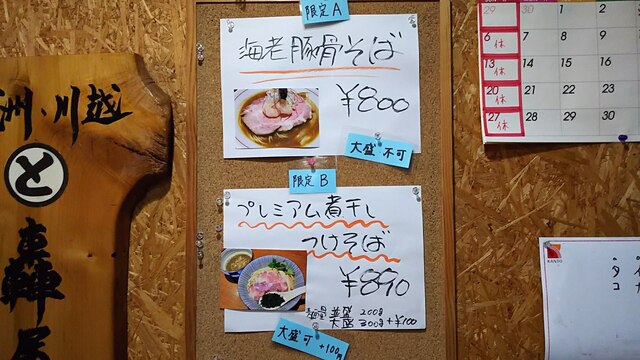 洲・川越
と
轟屋
限定A
海老豚骨そば
¥800
大盛 不可
限定 B
プレミアム煮干し
つけそば
¥890
麺量 並盛 200g
大盛 300g +¥100
大盛可 +100円
29 30 1 2
6 休 7 8 9
13 休 14 15 16
20 休 21 22 23
27 休 28 29 30
KANSO
タ
コ